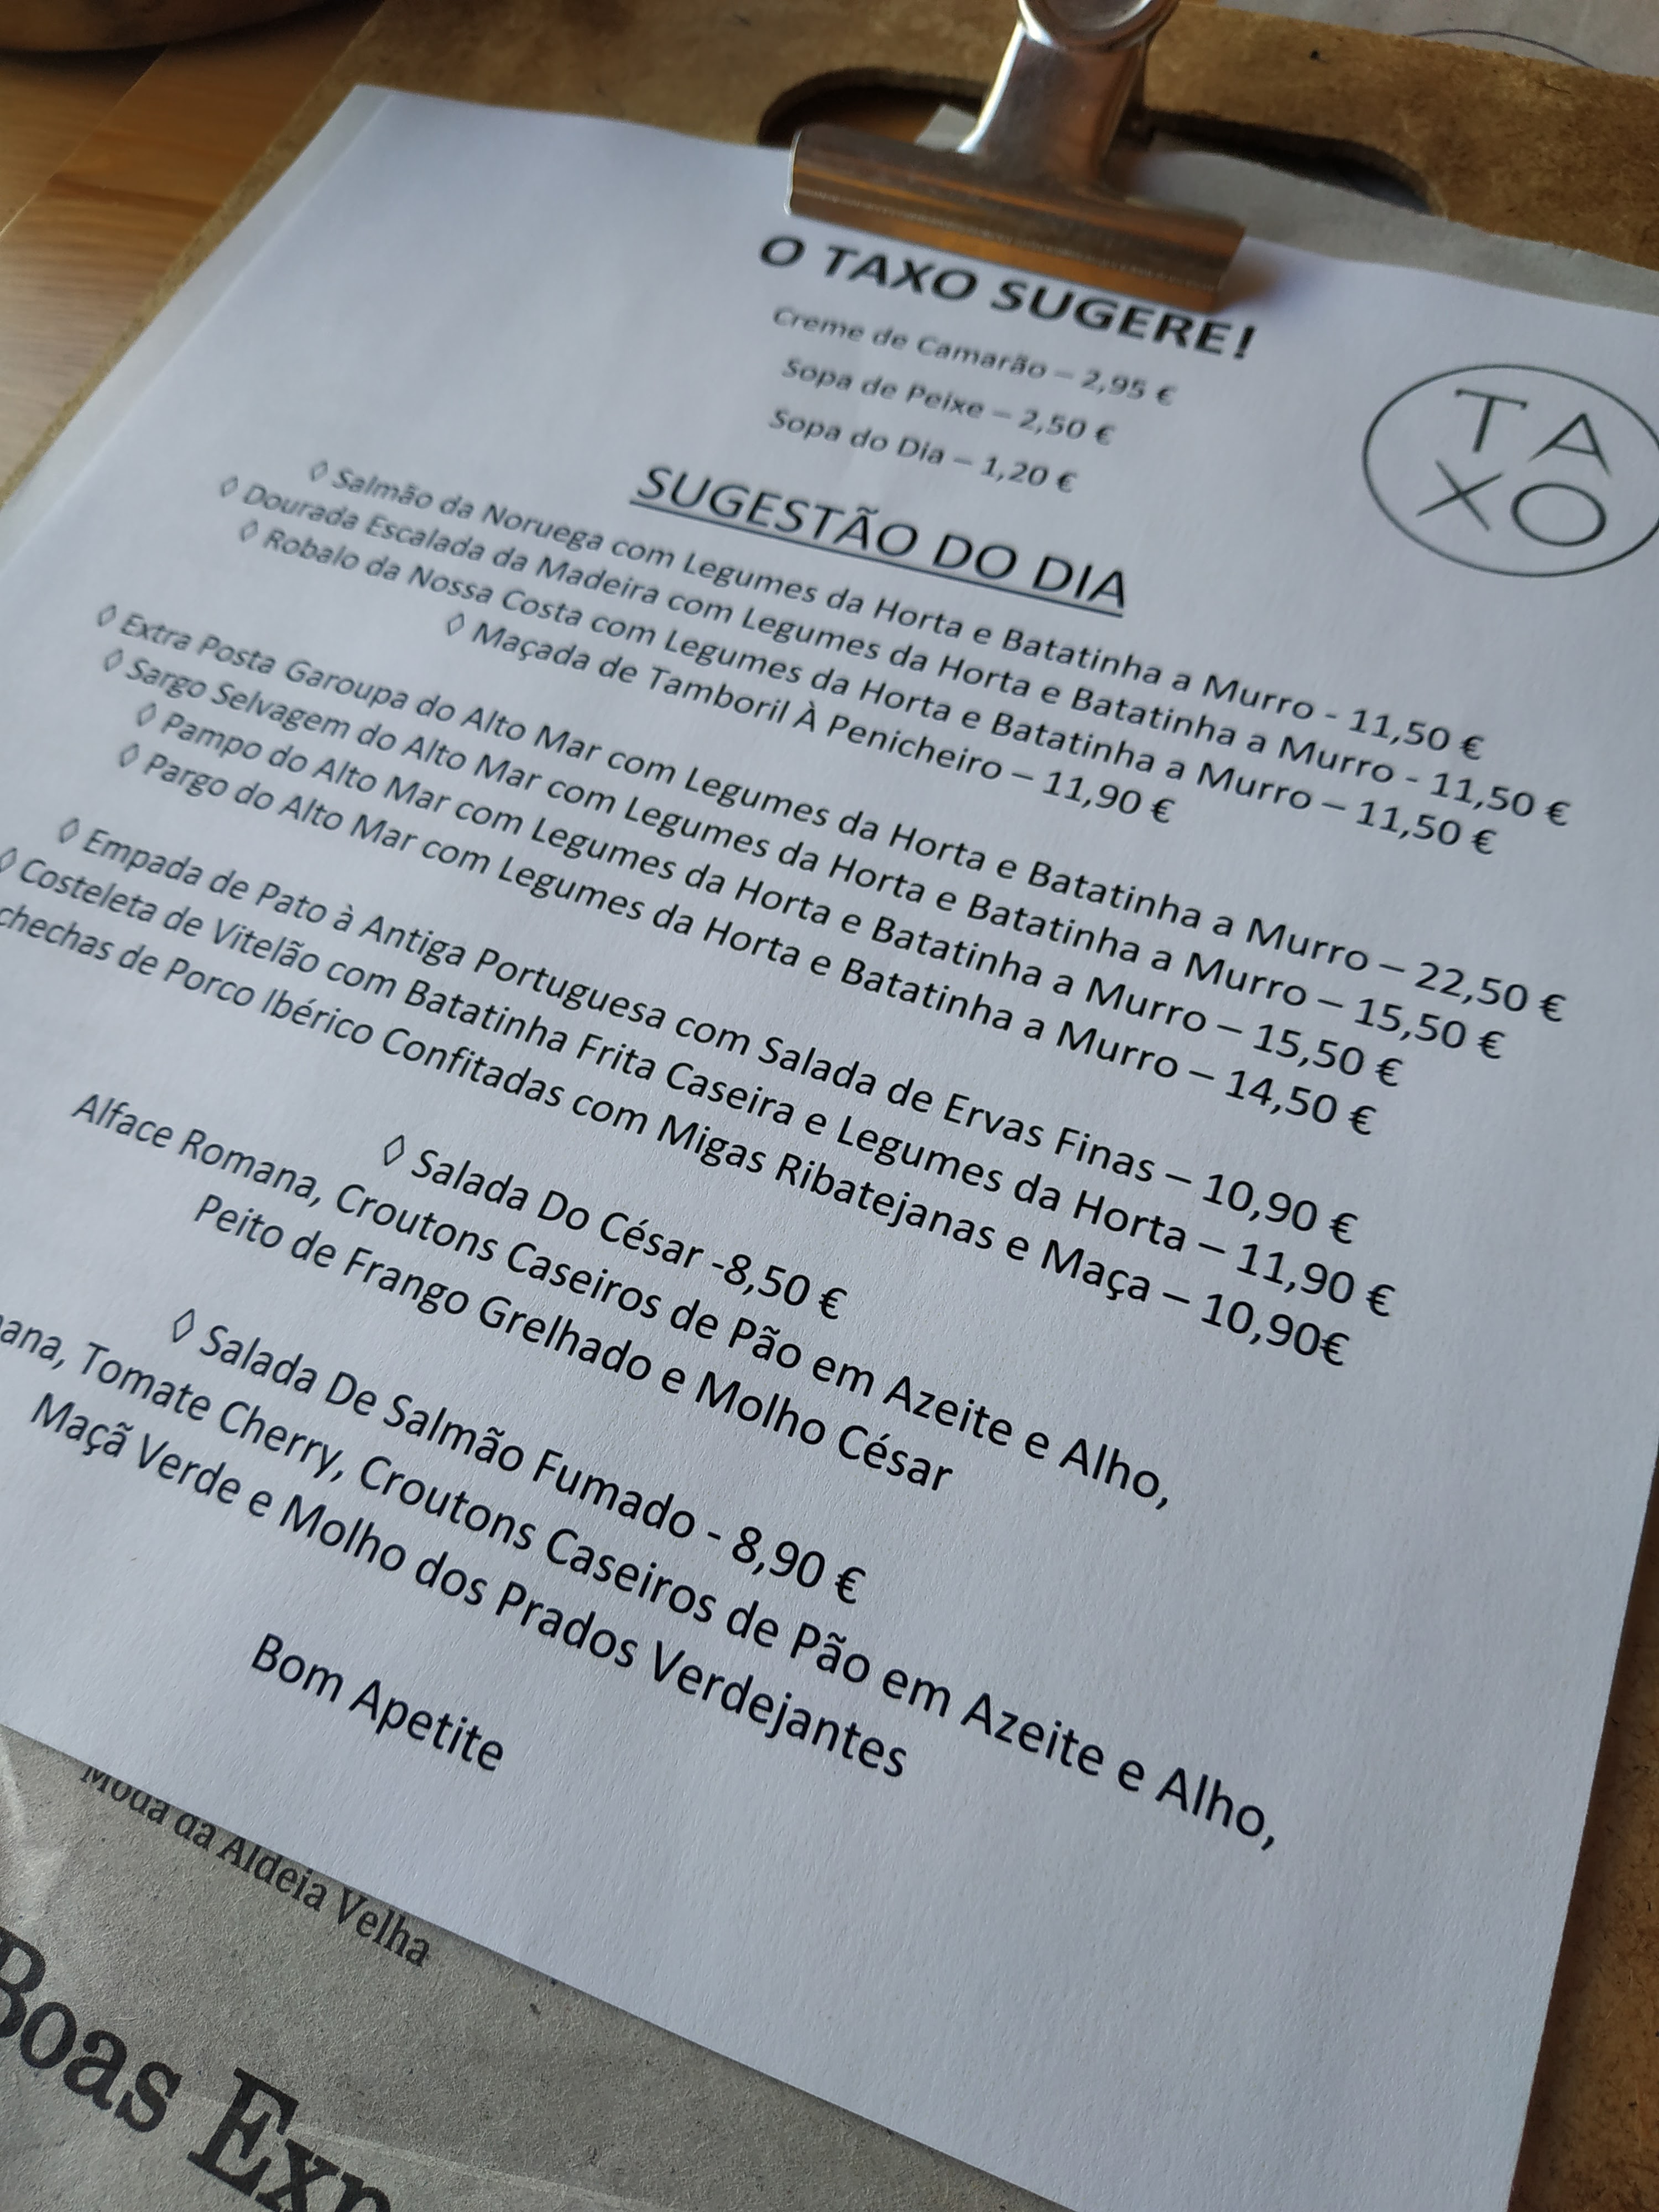 O TAXO SUGERE!
Creme de Camarão – 2,95 €
Sopa de Peixe – 2,50 €
Sopa do Dia – 1,20 €
TA
XO
SUGESTÃO DO DIA
◊ Salmão da Noruega com Legumes da Horta e Batatinha a Murro - 11,50 €
◊ Dourada Escalada da Madeira com Legumes da Horta e Batatinha a Murro - 11,50 €
◊ Robalo da Nossa Costa com Legumes da Horta e Batatinha a Murro – 11,50 €
◊ Maçada de Tamboril À Penicheiro – 11,90 €
◊ Extra Posta Garoupa do Alto Mar com Legumes da Horta e Batatinha a Murro – 22,50 €
◊ Sargo Selvagem do Alto Mar com Legumes da Horta e Batatinha a Murro – 15,50 €
◊ Pampo do Alto Mar com Legumes da Horta e Batatinha a Murro – 15,50 €
◊ Pargo do Alto Mar com Legumes da Horta e Batatinha a Murro – 14,50 €
◊ Empada de Pato à Antiga Portuguesa com Salada de Ervas Finas – 10,90 €
◊ Costeleta de Vitelão com Batatinha Frita Caseira e Legumes da Horta – 11,90 €
chechas de Porco Ibérico Confitadas com Migas Ribatejanas e Maça – 10,90€
◊ Salada Do César -8,50 €
Alface Romana, Croutons Caseiros de Pão em Azeite e Alho,
Peito de Frango Grelhado e Molho César
◊ Salada De Salmão Fumado - 8,90 €
ana, Tomate Cherry, Croutons Caseiros de Pão em Azeite e Alho,
Maçã Verde e Molho dos Prados Verdejantes
Bom Apetite
Moda da Aldeia Velha
Boas Exp